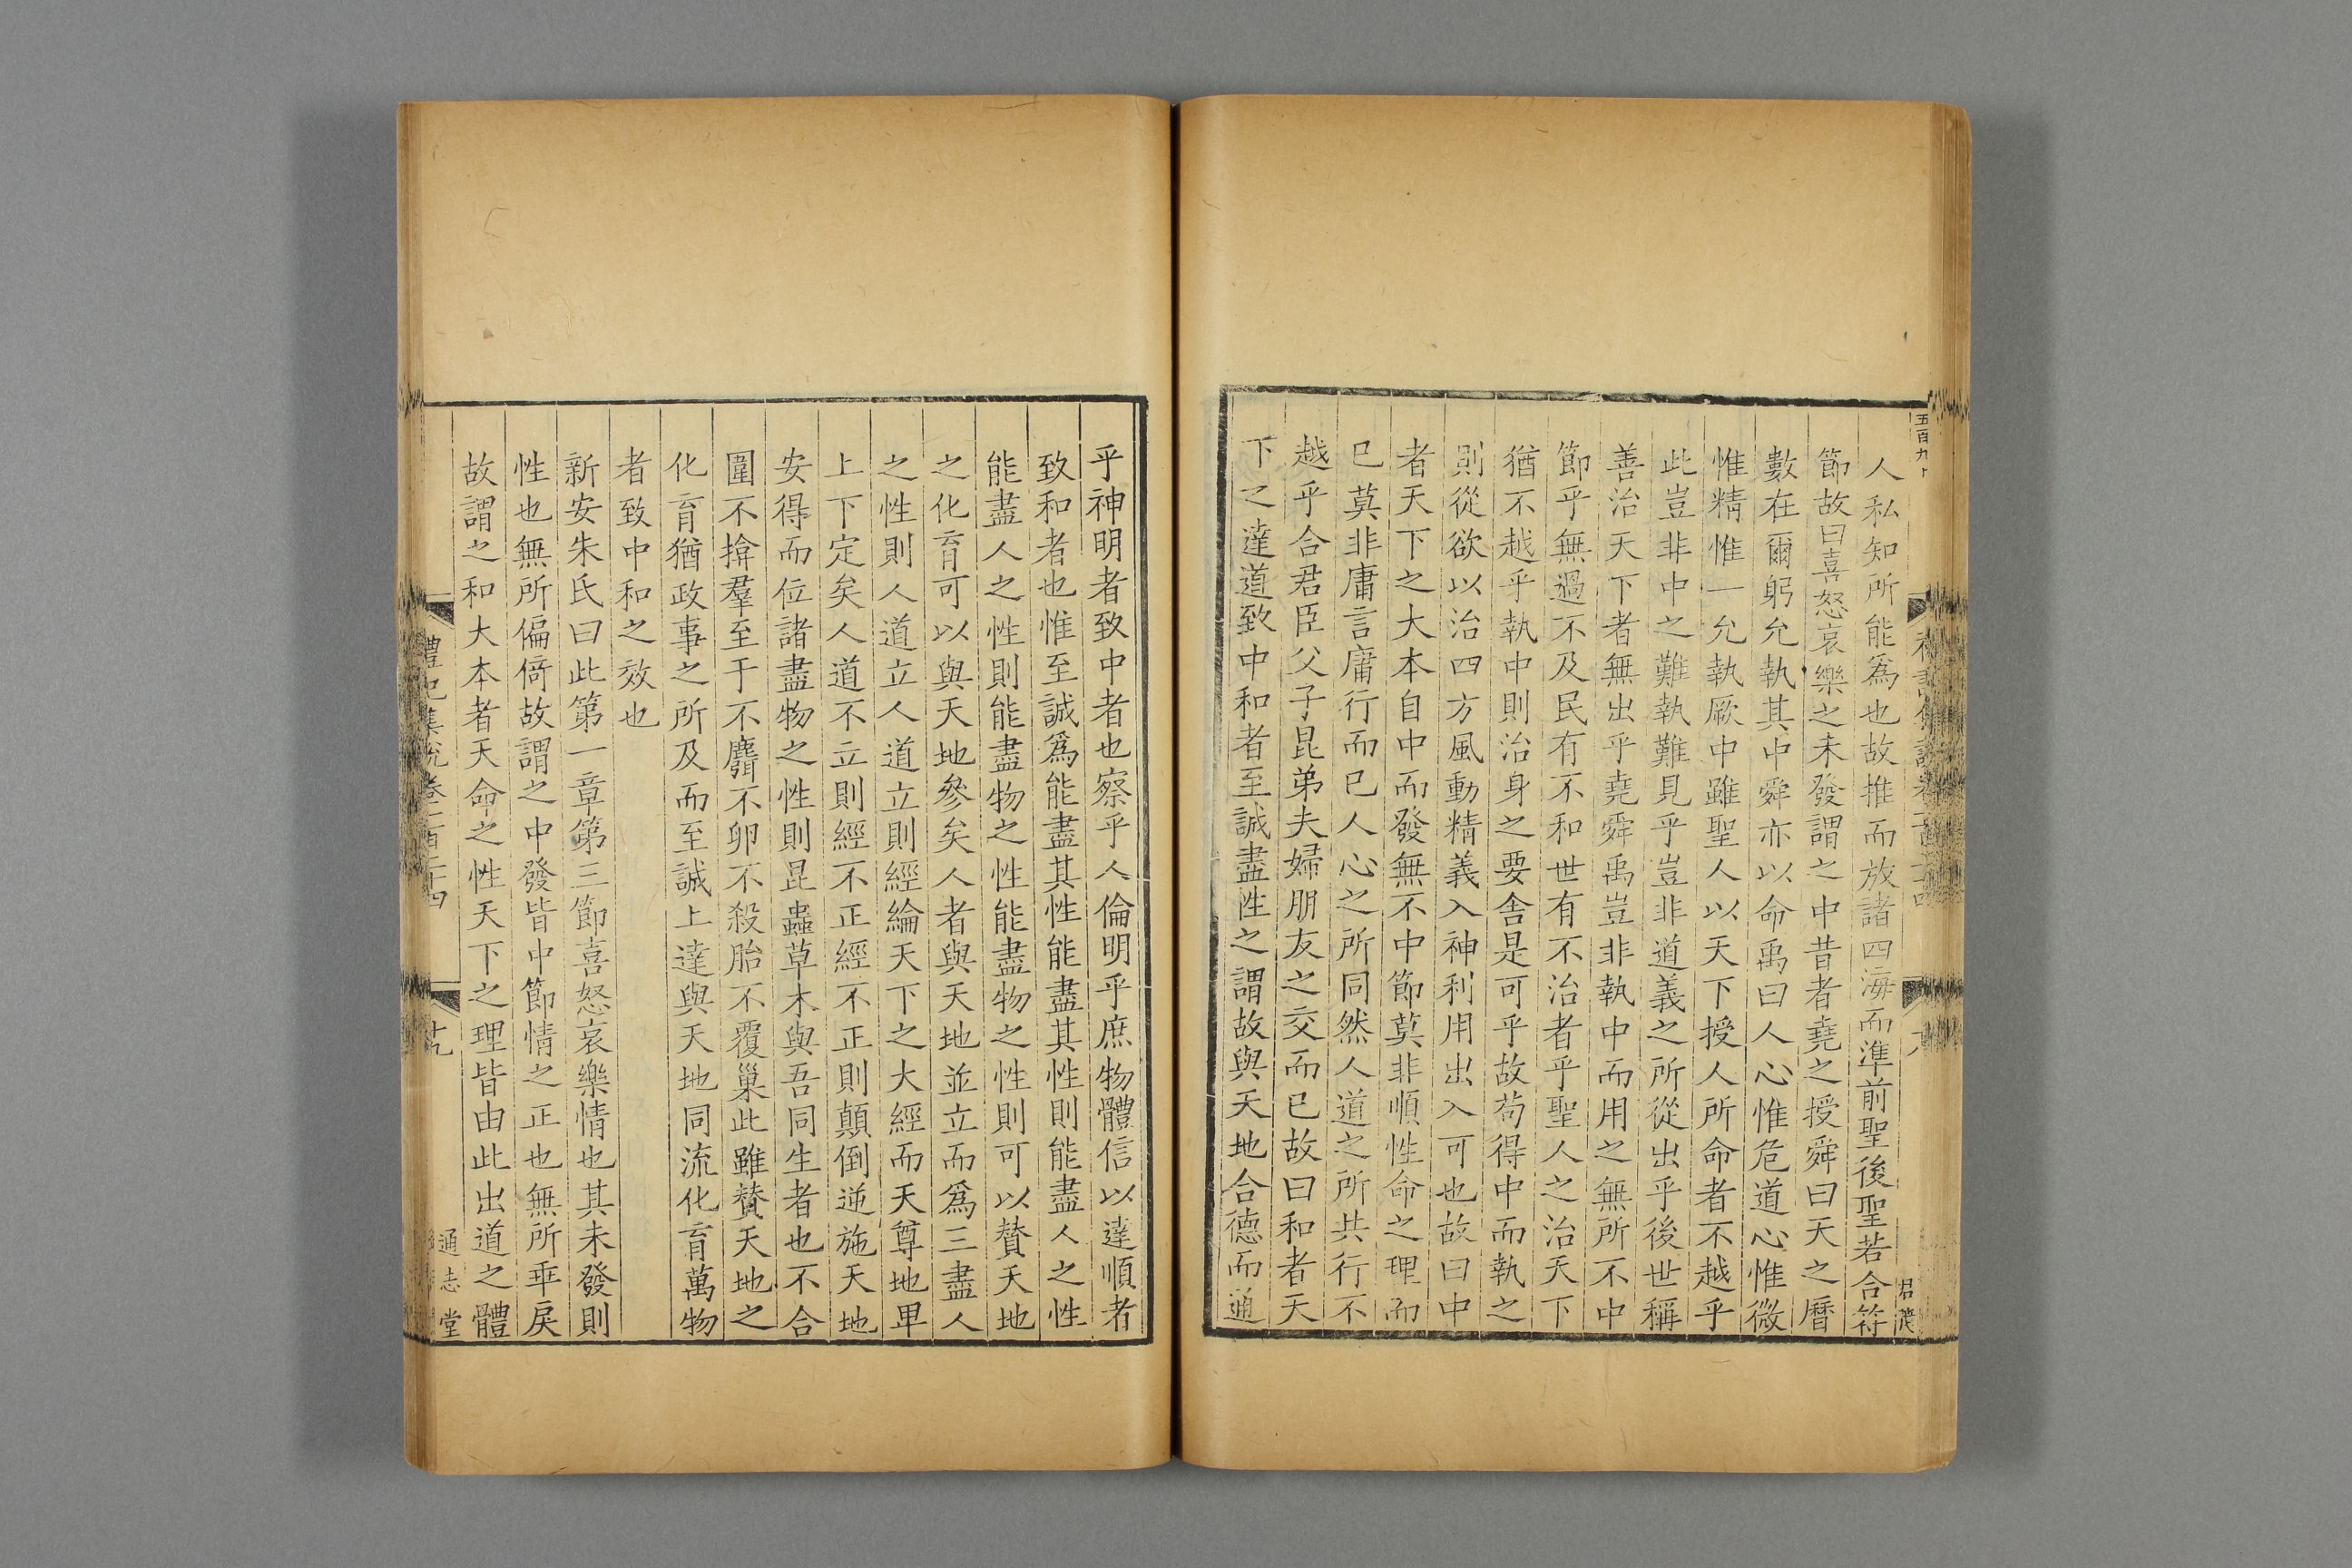 五百九十
人私知所能爲也故推而放諸四海而準前聖後聖若合符
節故曰喜怒哀樂之未發謂之中昔者堯之授舜曰天之曆
數在爾躬允執其中舜亦以命禹曰人心惟危道心惟微
惟精惟一允執厥中雖聖人以天下授人所命者不越乎
此豈非中之難執難見乎豈非道義之所從出乎後世稱
善治天下者無出乎堯舜禹豈非執中而用之無所不中
節乎無過不及民有不和世有不治者乎聖人之治天下
猶不越乎執中則治身之要舍是可乎故苟得中而執之
則從欲以治四方風動精義入神利用出入可也故曰中
者天下之大本自中而發無不中節莫非順性命之理而
已莫非庸言庸行而已人心之所同然人道之所共行不
越乎合君臣父子昆弟夫婦朋友之交而已故曰和者天
下之達道致中和者至誠盡性之謂故與天地合德而通
乎神明者致中者也察乎人倫明乎庶物體信以達順者
致和者也惟至誠爲能盡其性能盡其性則能盡人之性
能盡人之性則能盡物之性能盡物之性則可以賛天地
之化育可以與天地參矣人者與天地並立而爲三盡人
之性則人道立人道立則經綸天下之大經而天尊地卑
上下定矣人道不立則經不正經不正則顛倒逆施天地
安得而位諸盡物之性則昆蟲草木與吾同生者也不合
圍不揜羣至于不麛不卵不殺胎不覆巢此雖賛天地之
化育猶政事之所及而至誠上達與天地同流化育萬物
者致中和之效也
新安朱氏曰此第一章第三節喜怒哀樂情也其未發則
性也無所偏倚故謂之中發皆中節情之正也無所乖戾
故謂之和大本者天命之性天下之理皆由此出道之體
禮記集說卷一百二十四
通志堂